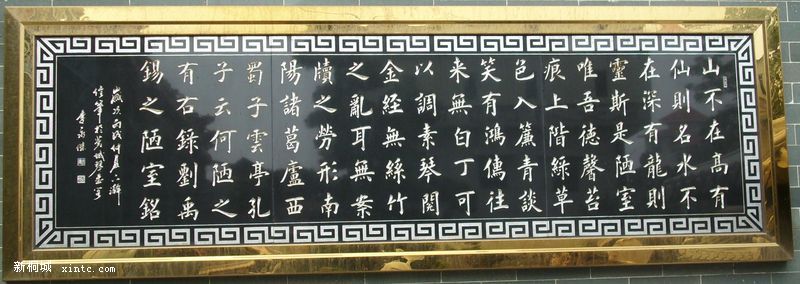 山不在高有
仙則名水不
在深有龍則
靈斯是陋室
唯吾德馨苔
痕上階綠草
色入簾青談
笑有鴻儒往
来無白丁可
以調素琴閱
金経無絲竹
之亂耳無案
牘之勞形南
陽諸葛廬西
蜀子雲亭孔
子云何陋之
有右錄劉禹
錫之陋室銘
歲次丙戌仲夏
新桐城 xintc.com